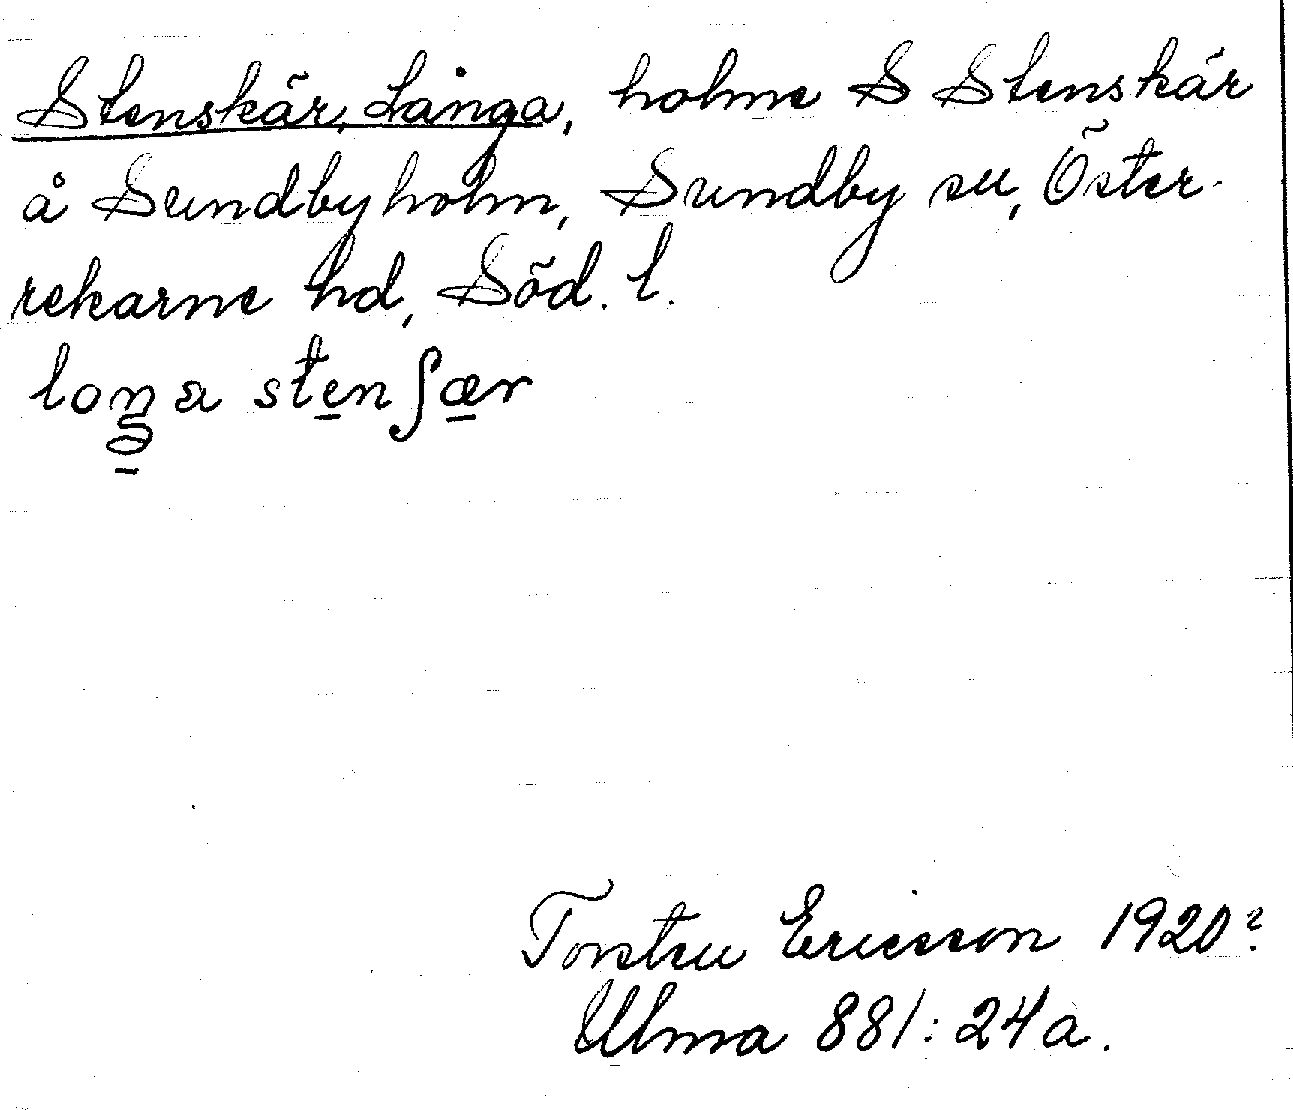 Stenskär, Långa, holme S Stenskär
å Sundbyholm, Sundby sn, Öster-
rekarne hd, Söd. l.
loŋa stenʃær
Torsten Ericsson 1920?
Ulma 881:24a.